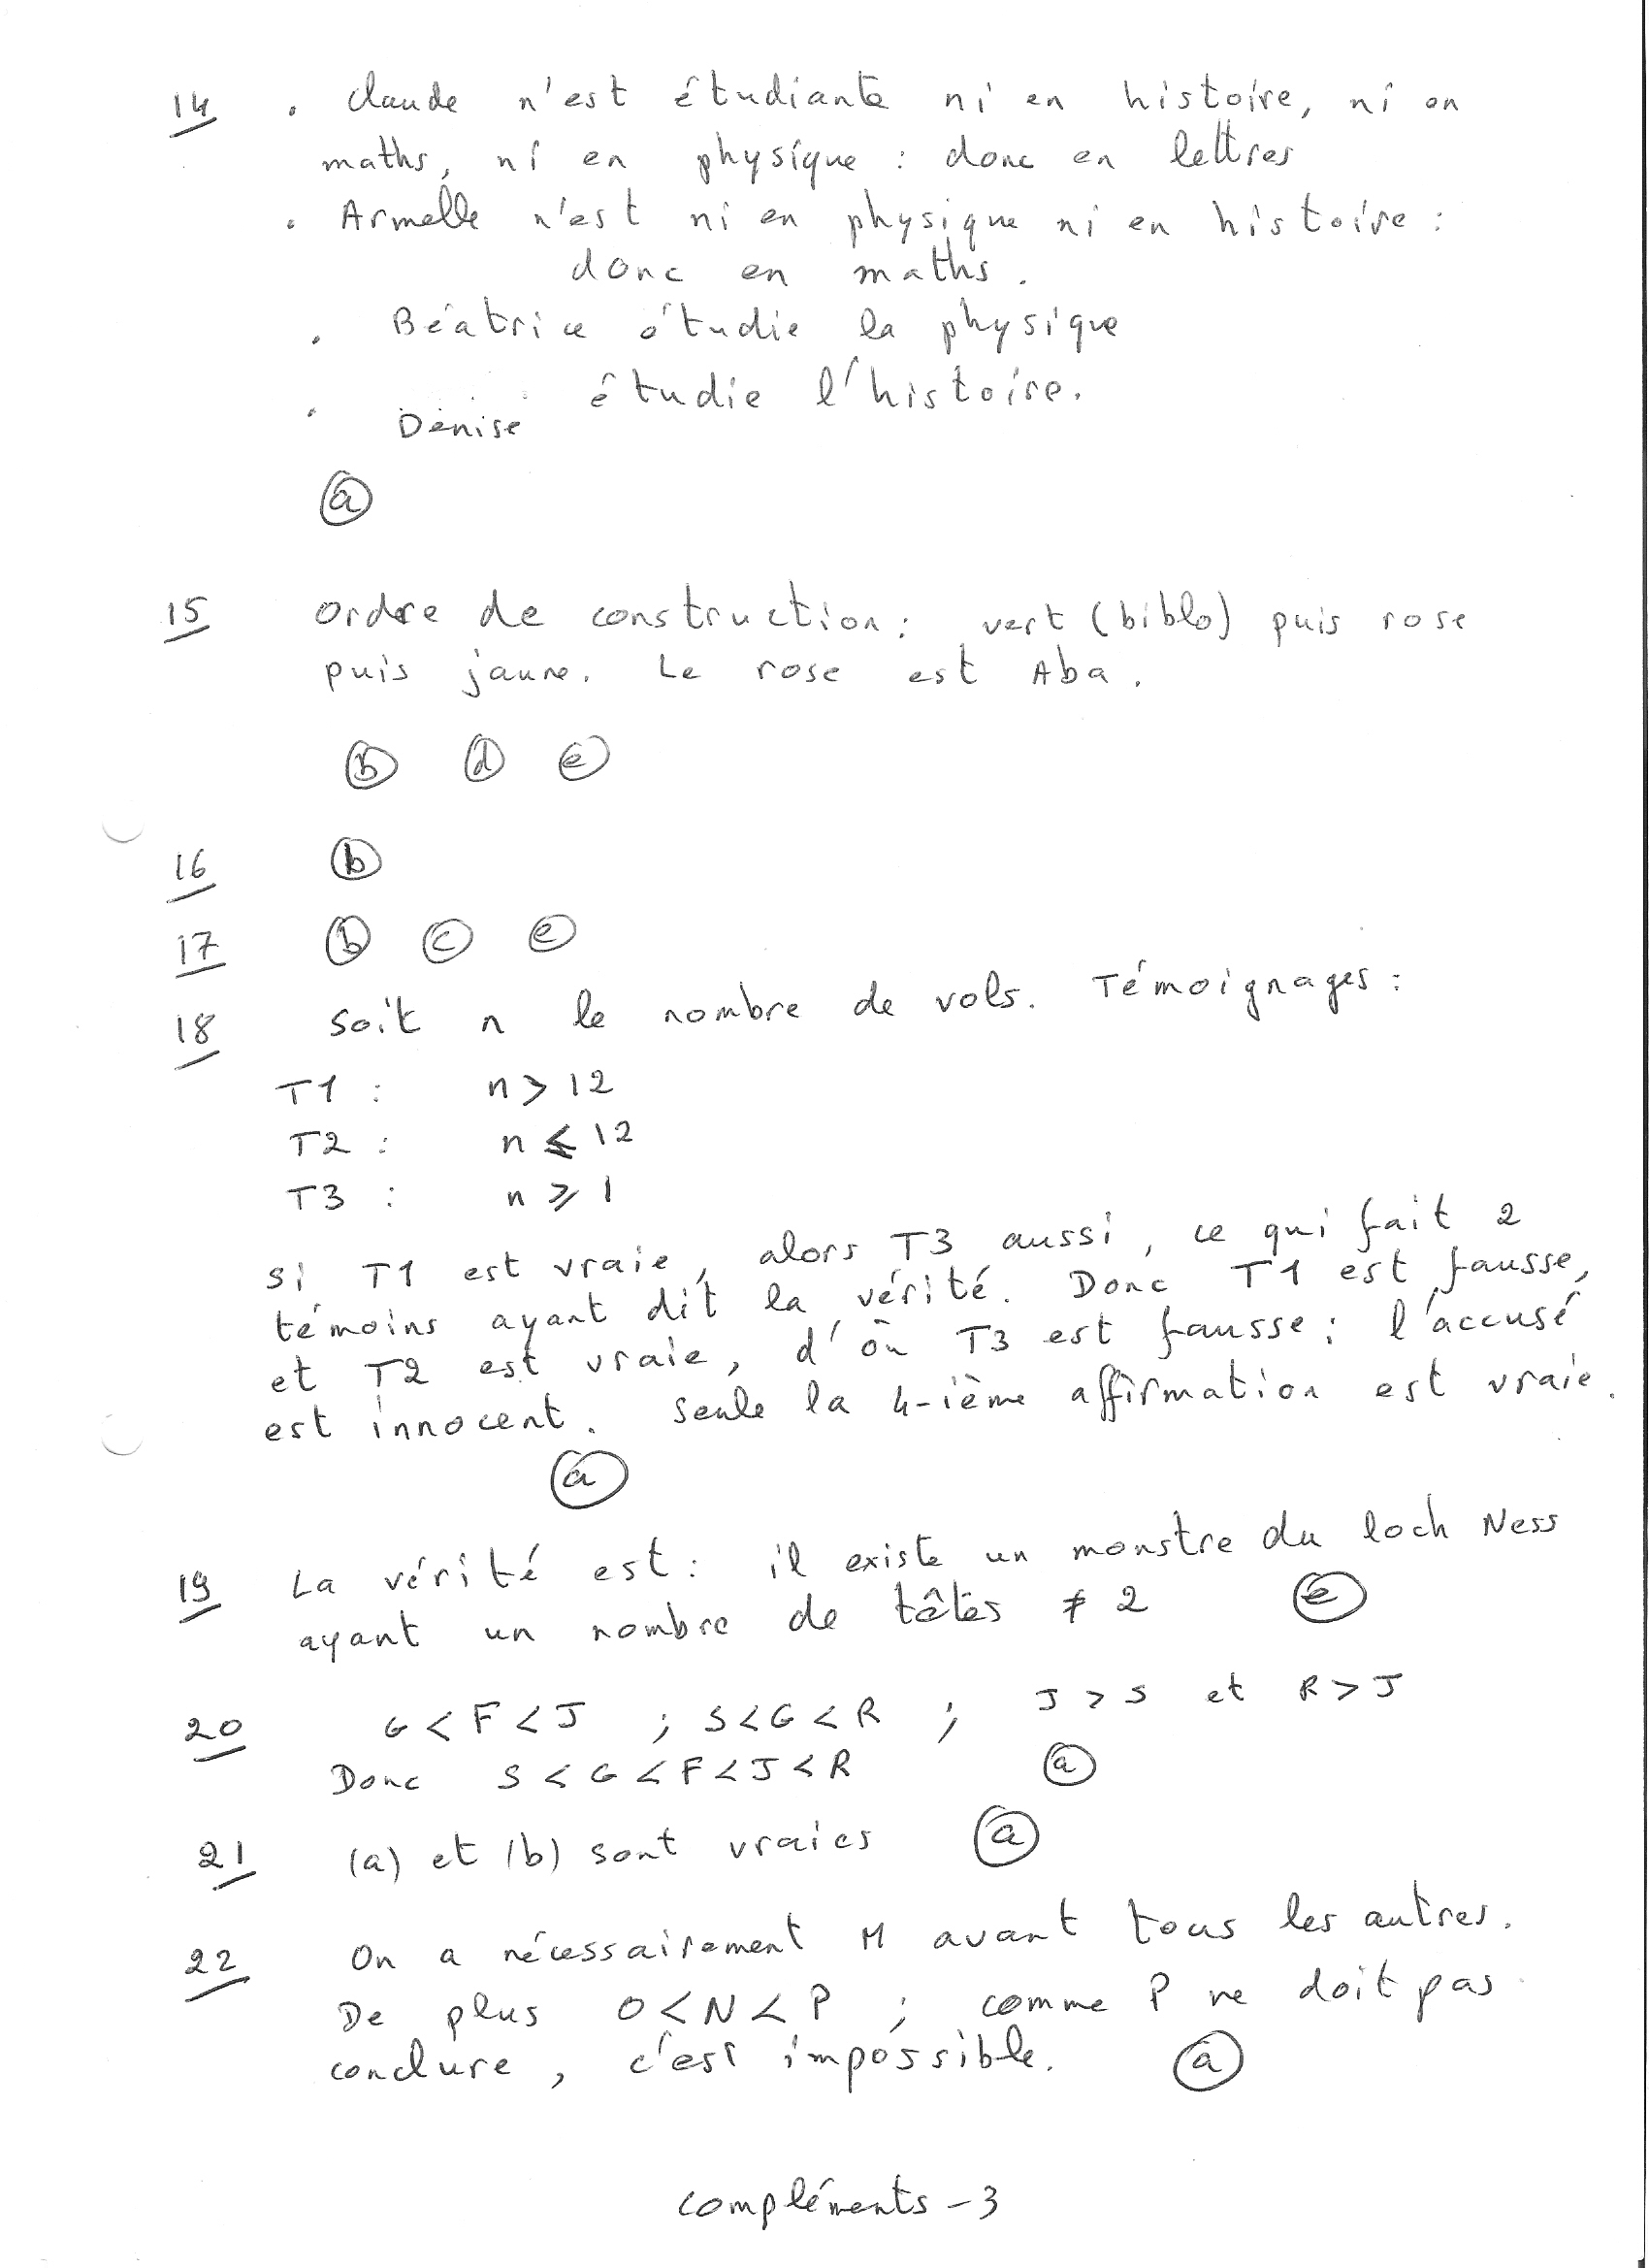 14 . Claude n'est étudiante ni en histoire, ni en
maths, ni en physique : donc en lettres
. Armelle n'est ni en physique ni en histoire :
donc en maths.
. Béatrice étudie la physique
. Denise étudie l'histoire.
(a)
15 Ordre de construction : vert (biblo) puis rose
puis jaune. Le rose est Aba.
(b) (d) (e)
16 (b)
17 (b) (c) (e)
18 Soit n le nombre de vols. Témoignages :
T1 : n > 12
T2 : n ⩽ 12
T3 : n ⩾ 1
Si T1 est vraie, alors T3 aussi, ce qui fait 2
témoins ayant dit la vérité. Donc T1 est fausse,
et T2 est vraie, d'où T3 est fausse : l'accusé
est innocent. Seule la 4-ième affirmation est vraie.
(a)
19 La vérité est : il existe un monstre du loch Ness
ayant un nombre de têtes ≠ 2 (e)
20 G < F < J ; S < G < R ; J > S et R > J
Donc S < G < F < J < R (a)
21 (a) et (b) sont vraies (a)
22 On a nécessairement M avant tous les autres.
De plus O < N < P ; comme P ne doit pas
conclure, c'est impossible. (a)
compléments - 3